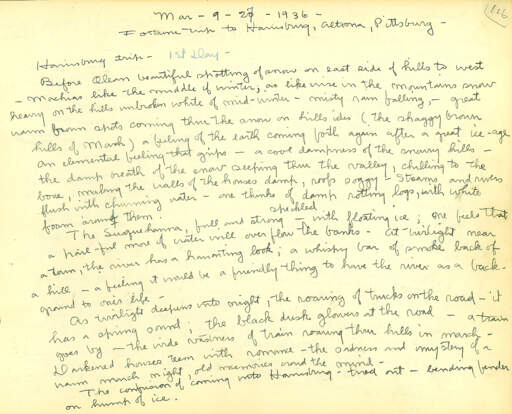 Mar - 9 - 27 - 1936 -
116
Fortune trip to Harrisburg, Altoona, Pittsburg -
Harrisburg trip - 1st Day -
Before Olean beautiful spotting of snow on east side of hills to west
- Machias like the middle of winter, as likewise in the mountains snow
heavy on the hills unbroken white of mid-winter - misty rain falling, - great
warm brown spots coming thru the snow on hillsides (the shaggy brown
hills of March) a feeling of the earth coming forth again after a great ice-age
An elemental feeling that grips - a cool dampness of the snowy hills -
the damp breath of the snow seeping thru the valley, chilling to the
bone, making the walls of the houses damp, roofs soggy - Streams and rivers
flush with churning water - one thinks of damp rotting logs, with white
foam around them.
The Susquehanna, full and strong - with floating ice; one feels that
speckled
a pail-full more of water will over flow the banks - At twilight near
a town, the river has a haunting look; a whispy bar of smoke back of
a hill - a feeling it would be a friendly thing to have the river as a back-
ground to one's life -
As twilight deepens into night, the roaring of trucks on the road - it
has a spring sound; the black dusk glowers at the road - a train
goes by - the wide vastness of train roaring thru hills in march -
Darkened houses teem with romance - the sadness and mystery of a
warm march night, old memories crowd the mind -
The confusion of coming into Harrisburg - tired out - bending fender
on hump of ice.